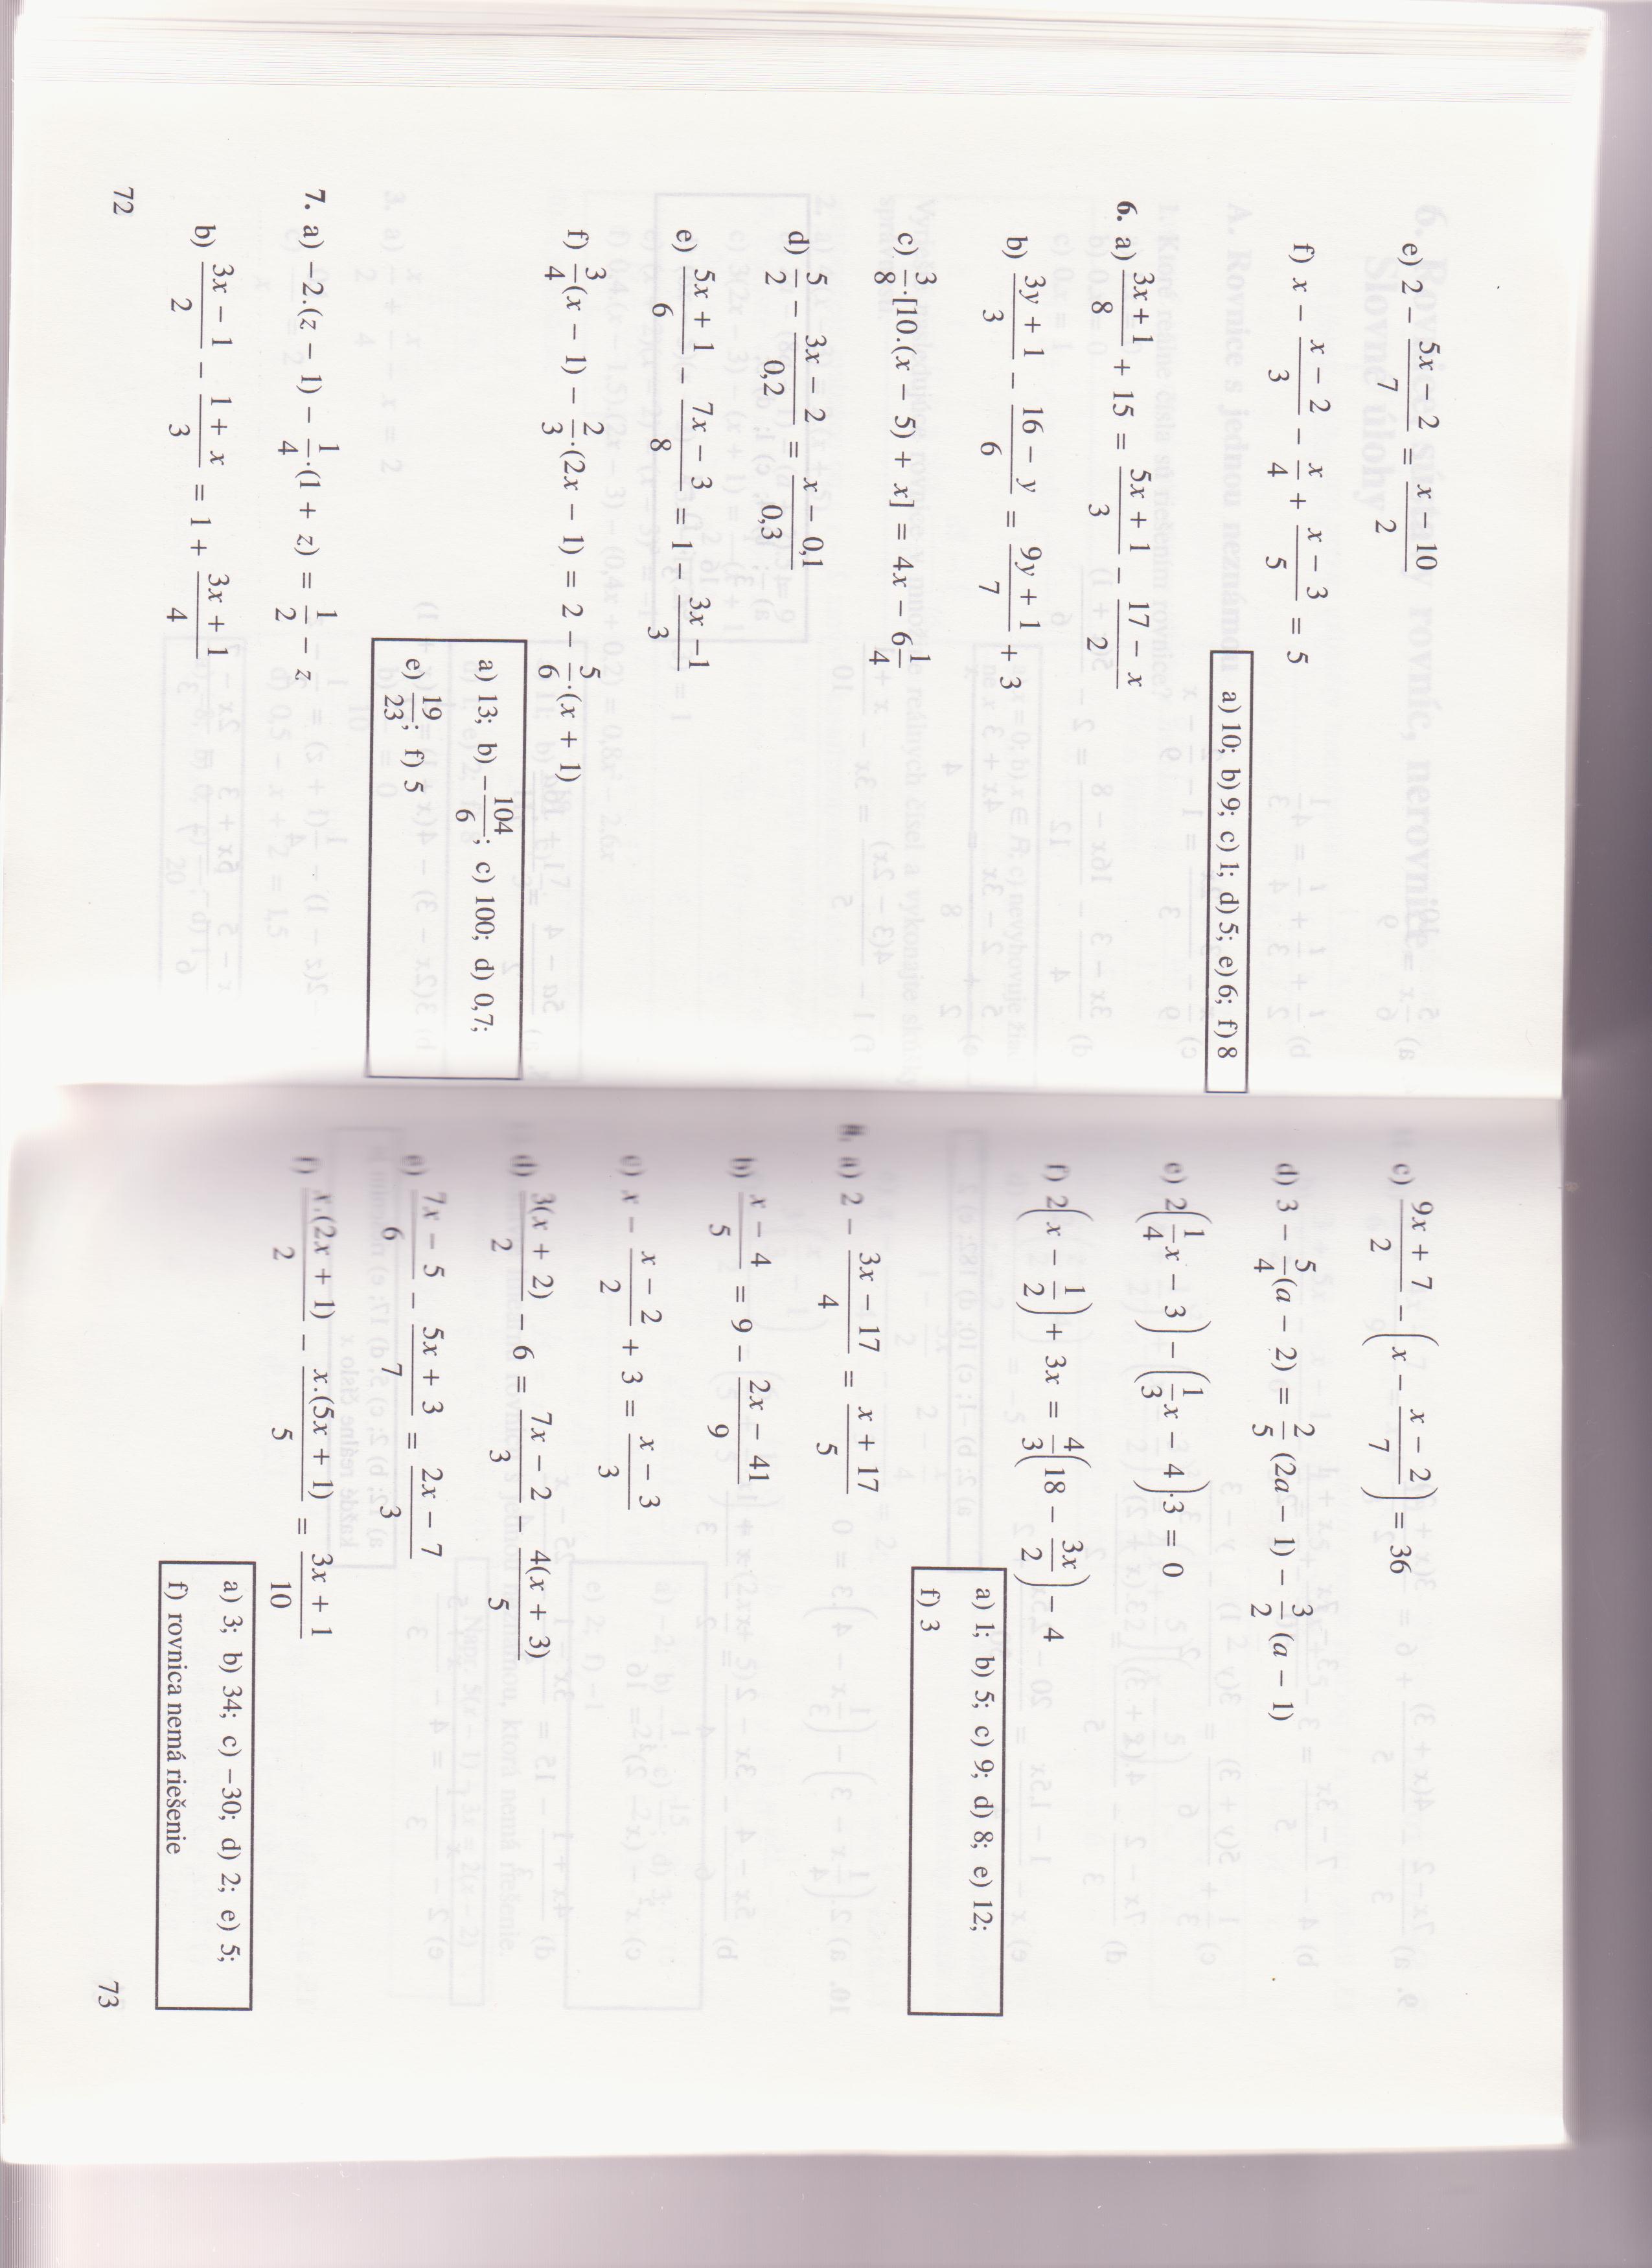 e) 2 − (5x − 2)/7 = (x − 10)/2
f) x − (x − 2)/3 − x/4 + (x − 3)/5 = 5
a) 10; b) 9; c) 1; d) 5; e) 6; f) 8
6. a) (3x + 1)/8 + 15 = (5x + 1)/3 − (17 − x)/2
b) (3y + 1)/3 − (16 − y)/6 = (9y + 1)/7 + 3
c) 3/8.[10.(x − 5) + x] = 4x − 6 1/4
d) 5/2 − (3x − 2)/0,2 = (x − 0,1)/0,3
e) (5x + 1)/6 − (7x − 3)/8 = 1 − (3x − 1)/3
f) 3/4(x − 1) − 2/3.(2x − 1) = 2 − 5/6.(x + 1)
a) 13; b) −104/6; c) 100; d) 0,7;
e) 19/23; f) 5
7. a) −2.(z − 1) − 1/4.(1 + z) = 1/2 − z
b) (3x − 1)/2 − (1 + x)/3 = 1 + (3x + 1)/4
72
c) (9x + 7)/2 − (x − (x − 2)/7) = 36
d) 3 − 5/4(a − 2) = 2/5(2a − 1) − 3/2(a − 1)
e) 2(1/4x − 3) − (1/3x − 4).3 = 0
f) 2(x − 1/2) + 3x = 4/3(18 − 3x/2) − 4
a) 1; b) 5; c) 9; d) 8; e) 12;
f) 3
8. a) 2 − (3x − 17)/4 = (x + 17)/5
b) (x − 4)/5 = 9 − (2x − 41)/9
c) x − (x − 2)/2 + 3 = (x − 3)/3
d) 3(x + 2)/2 − 6 = (7x − 2)/3 − 4(x + 3)/5
e) (7x − 5)/6 − (5x + 3)/7 = (2x − 7)/3
f) x.(2x + 1)/2 − x.(5x + 1)/5 = (3x + 1)/10
a) 3; b) 34; c) −30; d) 2; e) 5;
f) rovnica nemá riešenie
73